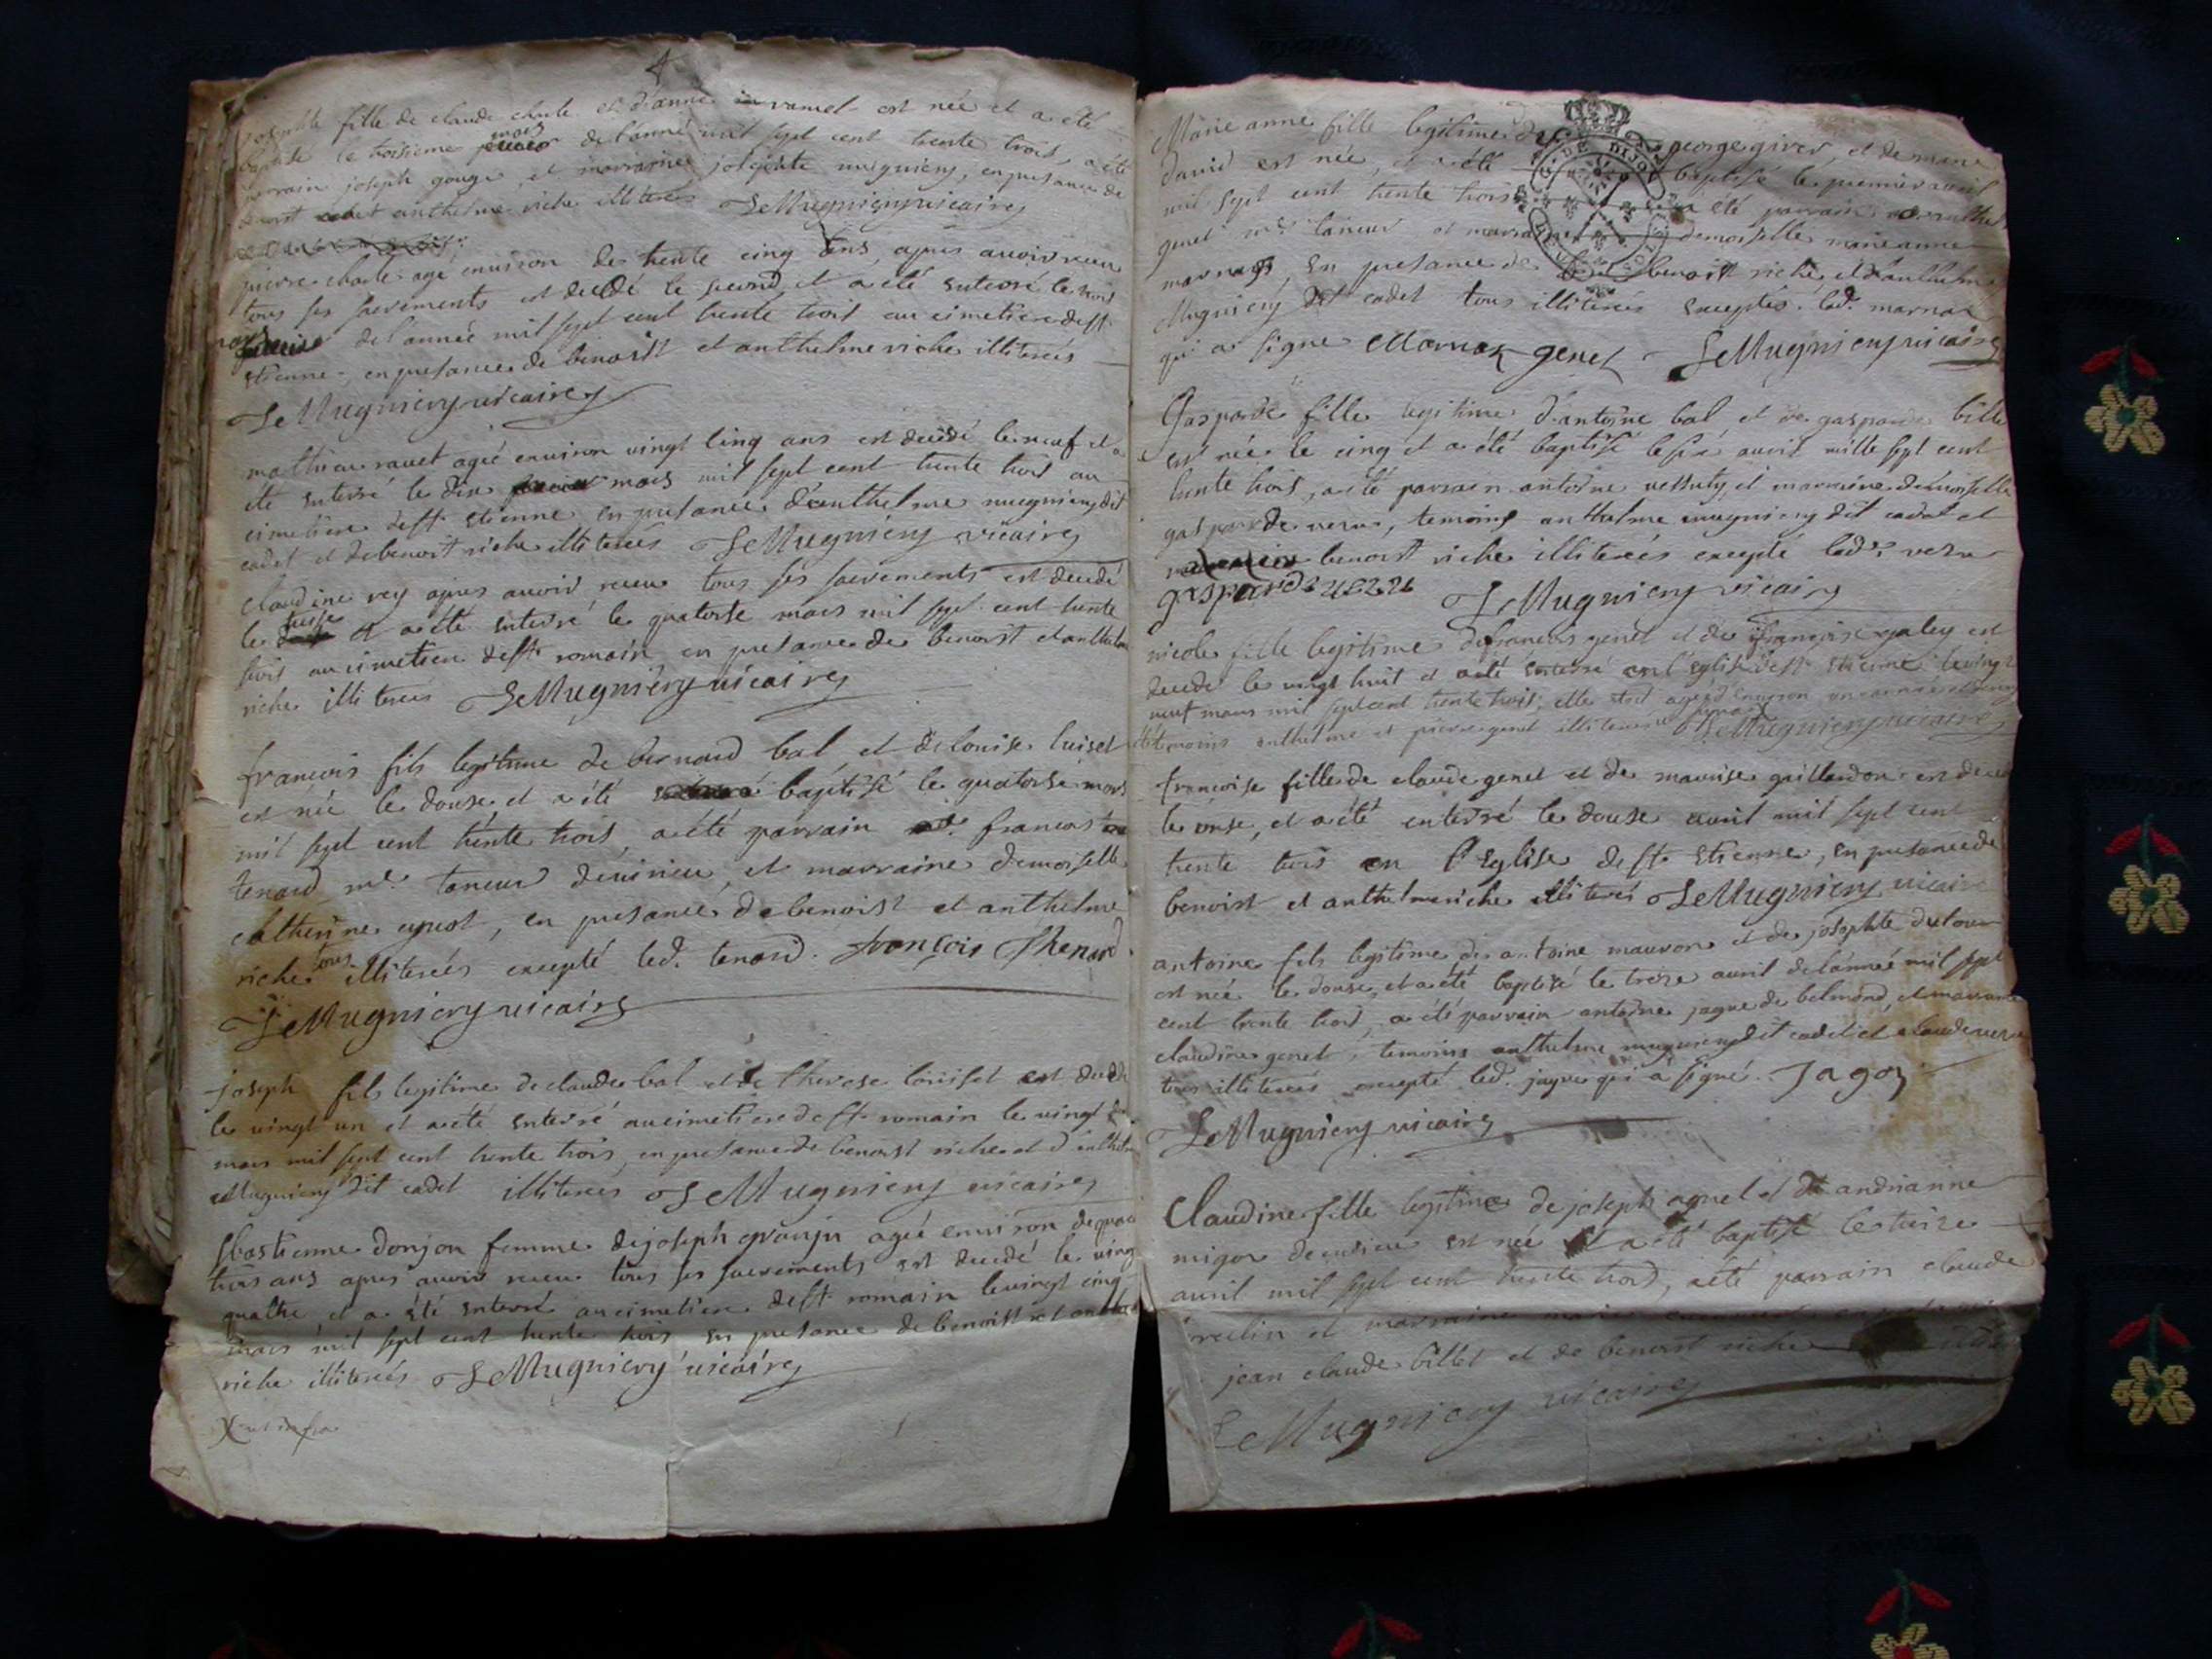 4
josephte fille de claude charle et d'anne ravuel est née et a été
baptisé le troisieme mars de l'anné mil sept cent trente trois, a été
parrain joseph gouge, et marraine josephte mugniery, en presance de
benoist et anthelme riche illiterés LeMugniery vicaire
pierre charle agé environ de trente cinq ans, apres avoir receu
tous ses sacrements est decedé le second et a été enterré le trois
mars de l'année mil sept cent trente trois au cimetiere de st
etienne, en presance de benoist et anthelme riche illiterés
LeMugniery vicaire
mathieu ravet agé environ vingt cinq ans est decedé le neuf et a
eté enterré le dix mars mil sept cent trente trois au
cimetiere de st etienne en presance d'anthelme mugniery dit
cadet et de benoist riche illiterés LeMugniery vicaire
claudine rey apres avoir receu tous ses sacrements est decedé
le treise et a eté enterré le quatorse mars mil sept cent trente
trois au cimetiere de st romain en presance de benoist et anthelme
riche illiterés LeMugniery vicaire
francois fils legitime de bernard bal, et de louise luiset
est née le douse, et a été baptisé le quatorse mars
mil sept cent trente trois, a été parrain francois
tenard md. taneur de virieu, et marraine demoiselle
catherine, en presance de benoist et anthelme
riche tous illiterés excepté led. tenard. françois Thenard
LeMugniery vicaire
joseph fils legitime de claude bal et de therese loüiset est decedé
le vingt un et a eté enterré au cimetiere de st romain le vingt
mars mil sept cent trente trois, en presance de benoist riche et d'anthelme
Mugniery dit cadet illiterés LeMugniery vicaire
sbastienne donjon femme de joseph granju agée environ de
trois ans apres avoir receu tous ses sacrements est decedé le vingt
quatre, et a été enterré au cimetiere de st romain le vingt cinq
mars mil sept cent trente trois en presance de benoist et anthelme
riche illiterés LeMugniery vicaire
Marie anne fille legitime de george, et de marie
david est née, et a été baptisé le premier avril
mil sept cent trente trois a été parrain
genet md. taneur et marraine demoiselle marieanne
marnax, en presance de benoist riche, et d'anthelme
Mugniery dit cadet tous illiterés exceptés led. marnax
qui a signe Marnax genet LeMugniery vicaire
GENER. DE DIJON
Gasparde fille legitime d'antoine bal, et de gasparde bille
est née le cinq et a été baptisé le six avril mille sept cent
trente trois, a été parrain antoine vessuty, et marraine demoiselle
gasparde verm, temoins anthelme mugniery dit cadet et
benoist riche illiterés excepté lade. verm
gasparde LeMugniery vicaire
nicole fille legitime de francois genet et de françoise galey est
decedé le vingt huit et a eté enterré en l'eglise de st etienne le vingt
neuf mars mil sept cent trente trois, elle etoit agée d'environ
temoins anthelme et pierre genet illiterés LeMugniery vicaire
françoise fille de claude genet et de maurise gaillardon est decedé
le onse, et a été enterré le douse avril mil sept cent
trente trois en l'eglise de st etienne, en presance de
benoist et anthelme riche illiterés LeMugniery vicaire
antoine fils legitime de antoine mauron et de josephte dutour
est née le douse, et a été baptisé le treise avril de l'année mil sept
cent trente trois, a été parrain antoine jague de belmond, et marraine
claudine genet, temoins anthelme mugniery dit cadet et claude
tous illiterés excepté led. jague qui a signé. Jagoz
LeMugniery vicaire
Claudine fille legitime de joseph agnel et de andrianne
migor est née et a été baptisé le treise
avril mil sept cent trente trois, a été parrain claude
et marraine marie
jean claude billet et de benoist riche
LeMugniery vicaire